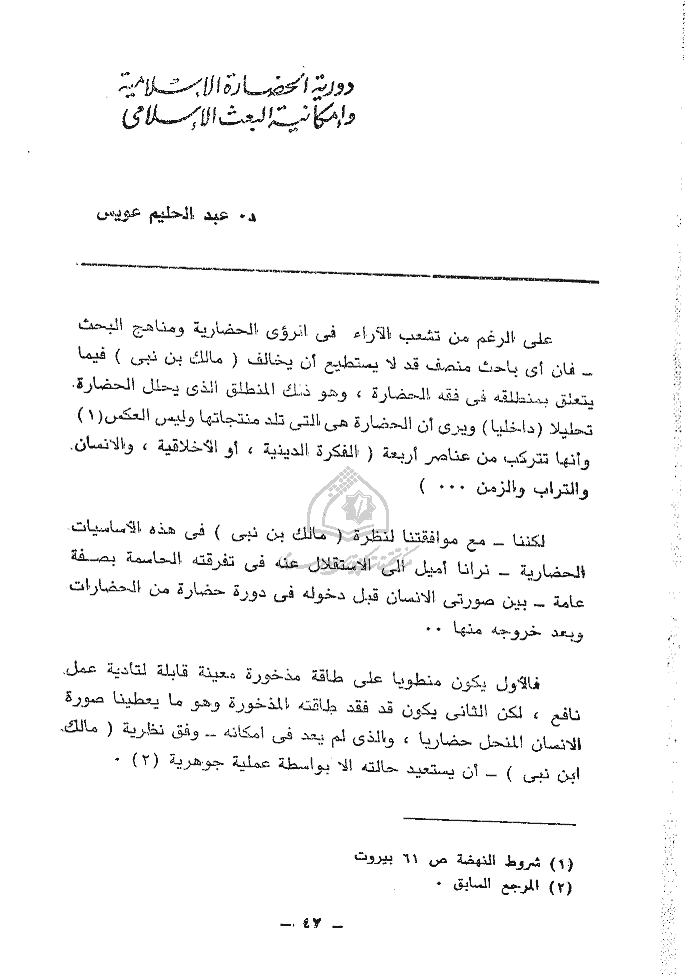 دورية الحضارة الإسلامية
وإمكانية البعث الإسلامى
د٠ عبد الحليم عويس
على الرغم من تشعب الآراء فى الرؤى الحضارية ومناهج البحث
– فان أى باحث منصف قد لا يستطيع أن يخالف ( مالك بن نبى ) فيما
يتعلق بمنطلقه فى فقه الحضارة ، وهو ذلك المنطلق الذى يحلل الحضارة
تحليلا (داخليا) ويرى أن الحضارة هى التى تلد منتجاتها وليس العكس(١)
وأنها تتركب من عناصر أربعة ( الفكرة الدينية ، أو الأخلاقية ، والانسان.
والتراب والزمن ٠٠٠ )
لكننا – مع موافقتنا لنظرة ( مالك بن نبى ) فى هذه الأساسيات
الحضارية – نرانا أميل الى الاستقلال عنه فى تفرقته الحاسمة بصفة
عامة – بين صورتى الانسان قبل دخوله فى دورة حضارة من الحضارات
وبعد خروجه منها ٠٠
فالأول يكون منطويا على طاقة مذخورة معينة قابلة لتأدية عمل
نافع ، لكن الثانى يكون قد فقد طاقته المذخورة وهو ما يعطينا صورة
الانسان المنحل حضاريا ، والذى لم يعد فى امكانه – وفق نظرية ( مالك.
ابن نبى ) – أن يستعيد حالته الا بواسطة عملية جوهرية (٢) ٠
(١) شروط النهضة ص ٦١ بيروت
(٢) المرجع السابق ٠
– ٤٧ –